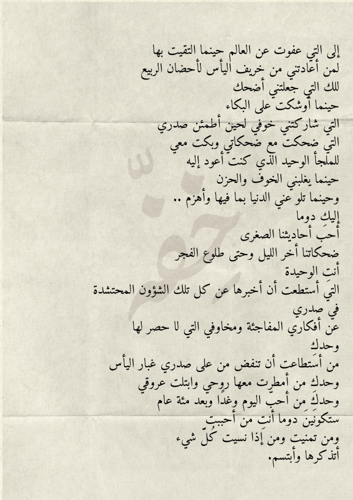 إلى التي عفوت عن العالم حينما التقيت بها
لمن أعادتني من خريف اليأس لأحضان الربيع
للك التي جعلتني أضحك
حينما أوشكت على البكاء
التي شاركتني خوفي لحين أطمئن صدري
التي ضحكت مع ضحكاتي وبكت معي
للملجأ الوحيد الذي كنت أعود إليه
حينما يغلبني الخوف والحزن
وحينما تلو عني الدنيا بما فيها وأهزم ..
إليك دوما
أحب أحاديثنا الصغرى
ضحكاتنا أخر الليل وحتى طلوع الفجر
أنتِ الوحيدة
التي أستطعت أن أخبرها عن كل تلك الشؤون المحتشدة
في صدري
عن أفكاري المفاجئة ومخاوفي التي لا حصر لها
وحدك
من أستطاعت أن تنفض من على صدري غبار اليأس
وحدكِ من أمطرت معها روحي وابتلت عروقي
وحدكِ من أحب اليوم وغدا وبعد مئة عام
ستكونين دوما أنتِ من أحببت
ومن تمنيت ومن إذا نسيت كُلّ شيء
أتذكرها وأبتسم.